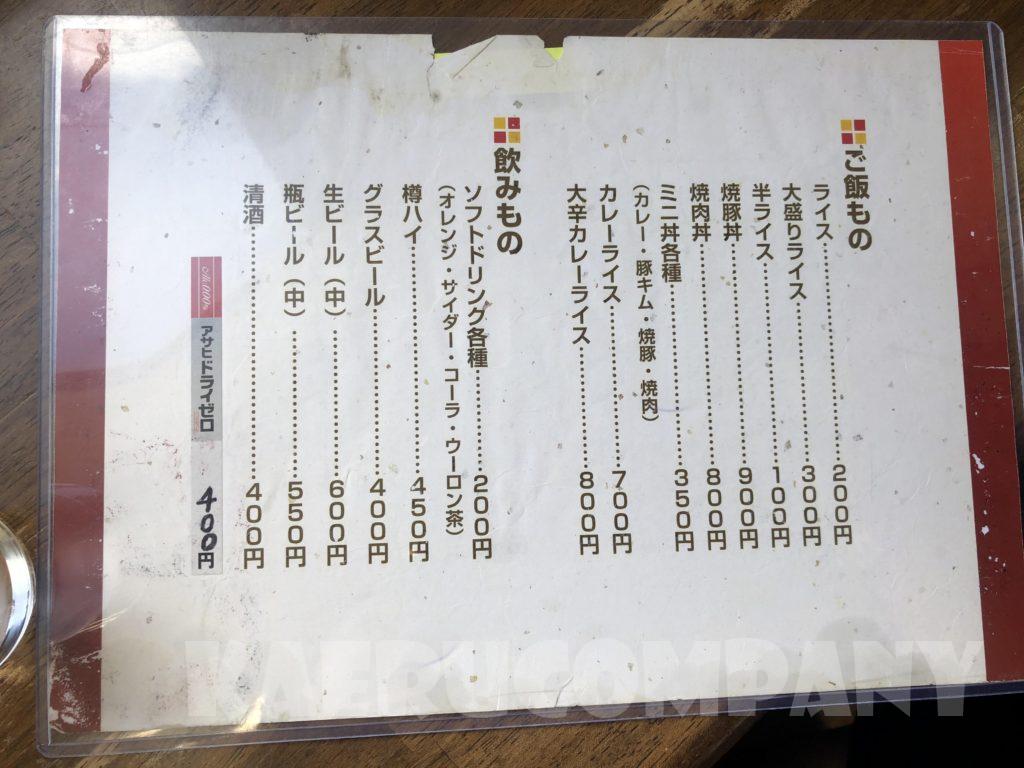 ご飯もの
ライス……………………200円
大盛りライス……………300円
半ライス…………………100円
焼豚丼……………………900円
焼肉丼……………………800円
ミニ丼各種………………350円
(カレー・豚キム・焼豚・焼肉)
カレーライス……………700円
大辛カレーライス………800円
飲みもの
ソフトドリング各種……200円
(オレンジ・サイダー・コーラ・ウーロン茶)
樽ハイ……………………450円
グラスビール……………400円
生ビール(中)……………600円
瓶ビール(中)……………550円
清酒………………………400円
アサヒドライゼロ 400円
KAERUCOMPANY